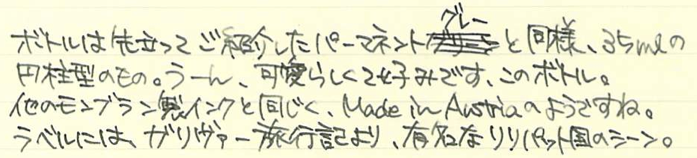 ボトルは先立ってご紹介したパーマネントグレーと同様、35mlの
円柱型のもの。うーん、可愛らしくて好みです、このボトル。
他のモンブラン製インクと同じく、Made in Austriaのようですね。
ラベルには、ガリヴァー旅行記より、有名なリリパット国のシーン。